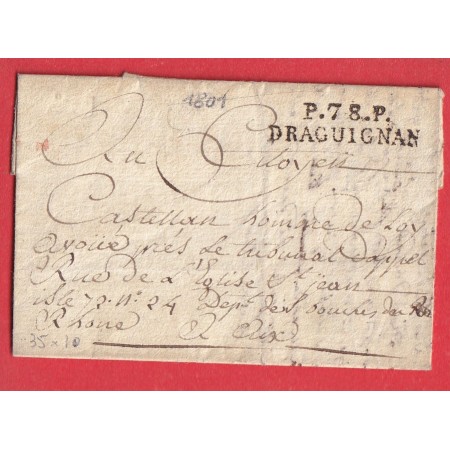 1801
P.78.P.
DRAGUIGNAN
Au Citoyen
Castellan homme de Loy
avoüé prés le tribunal d'appel
Rue de L'Eglise St jean
isle 72. N.o 24 Dep.t des bouches du
Rhone A aix
35x10